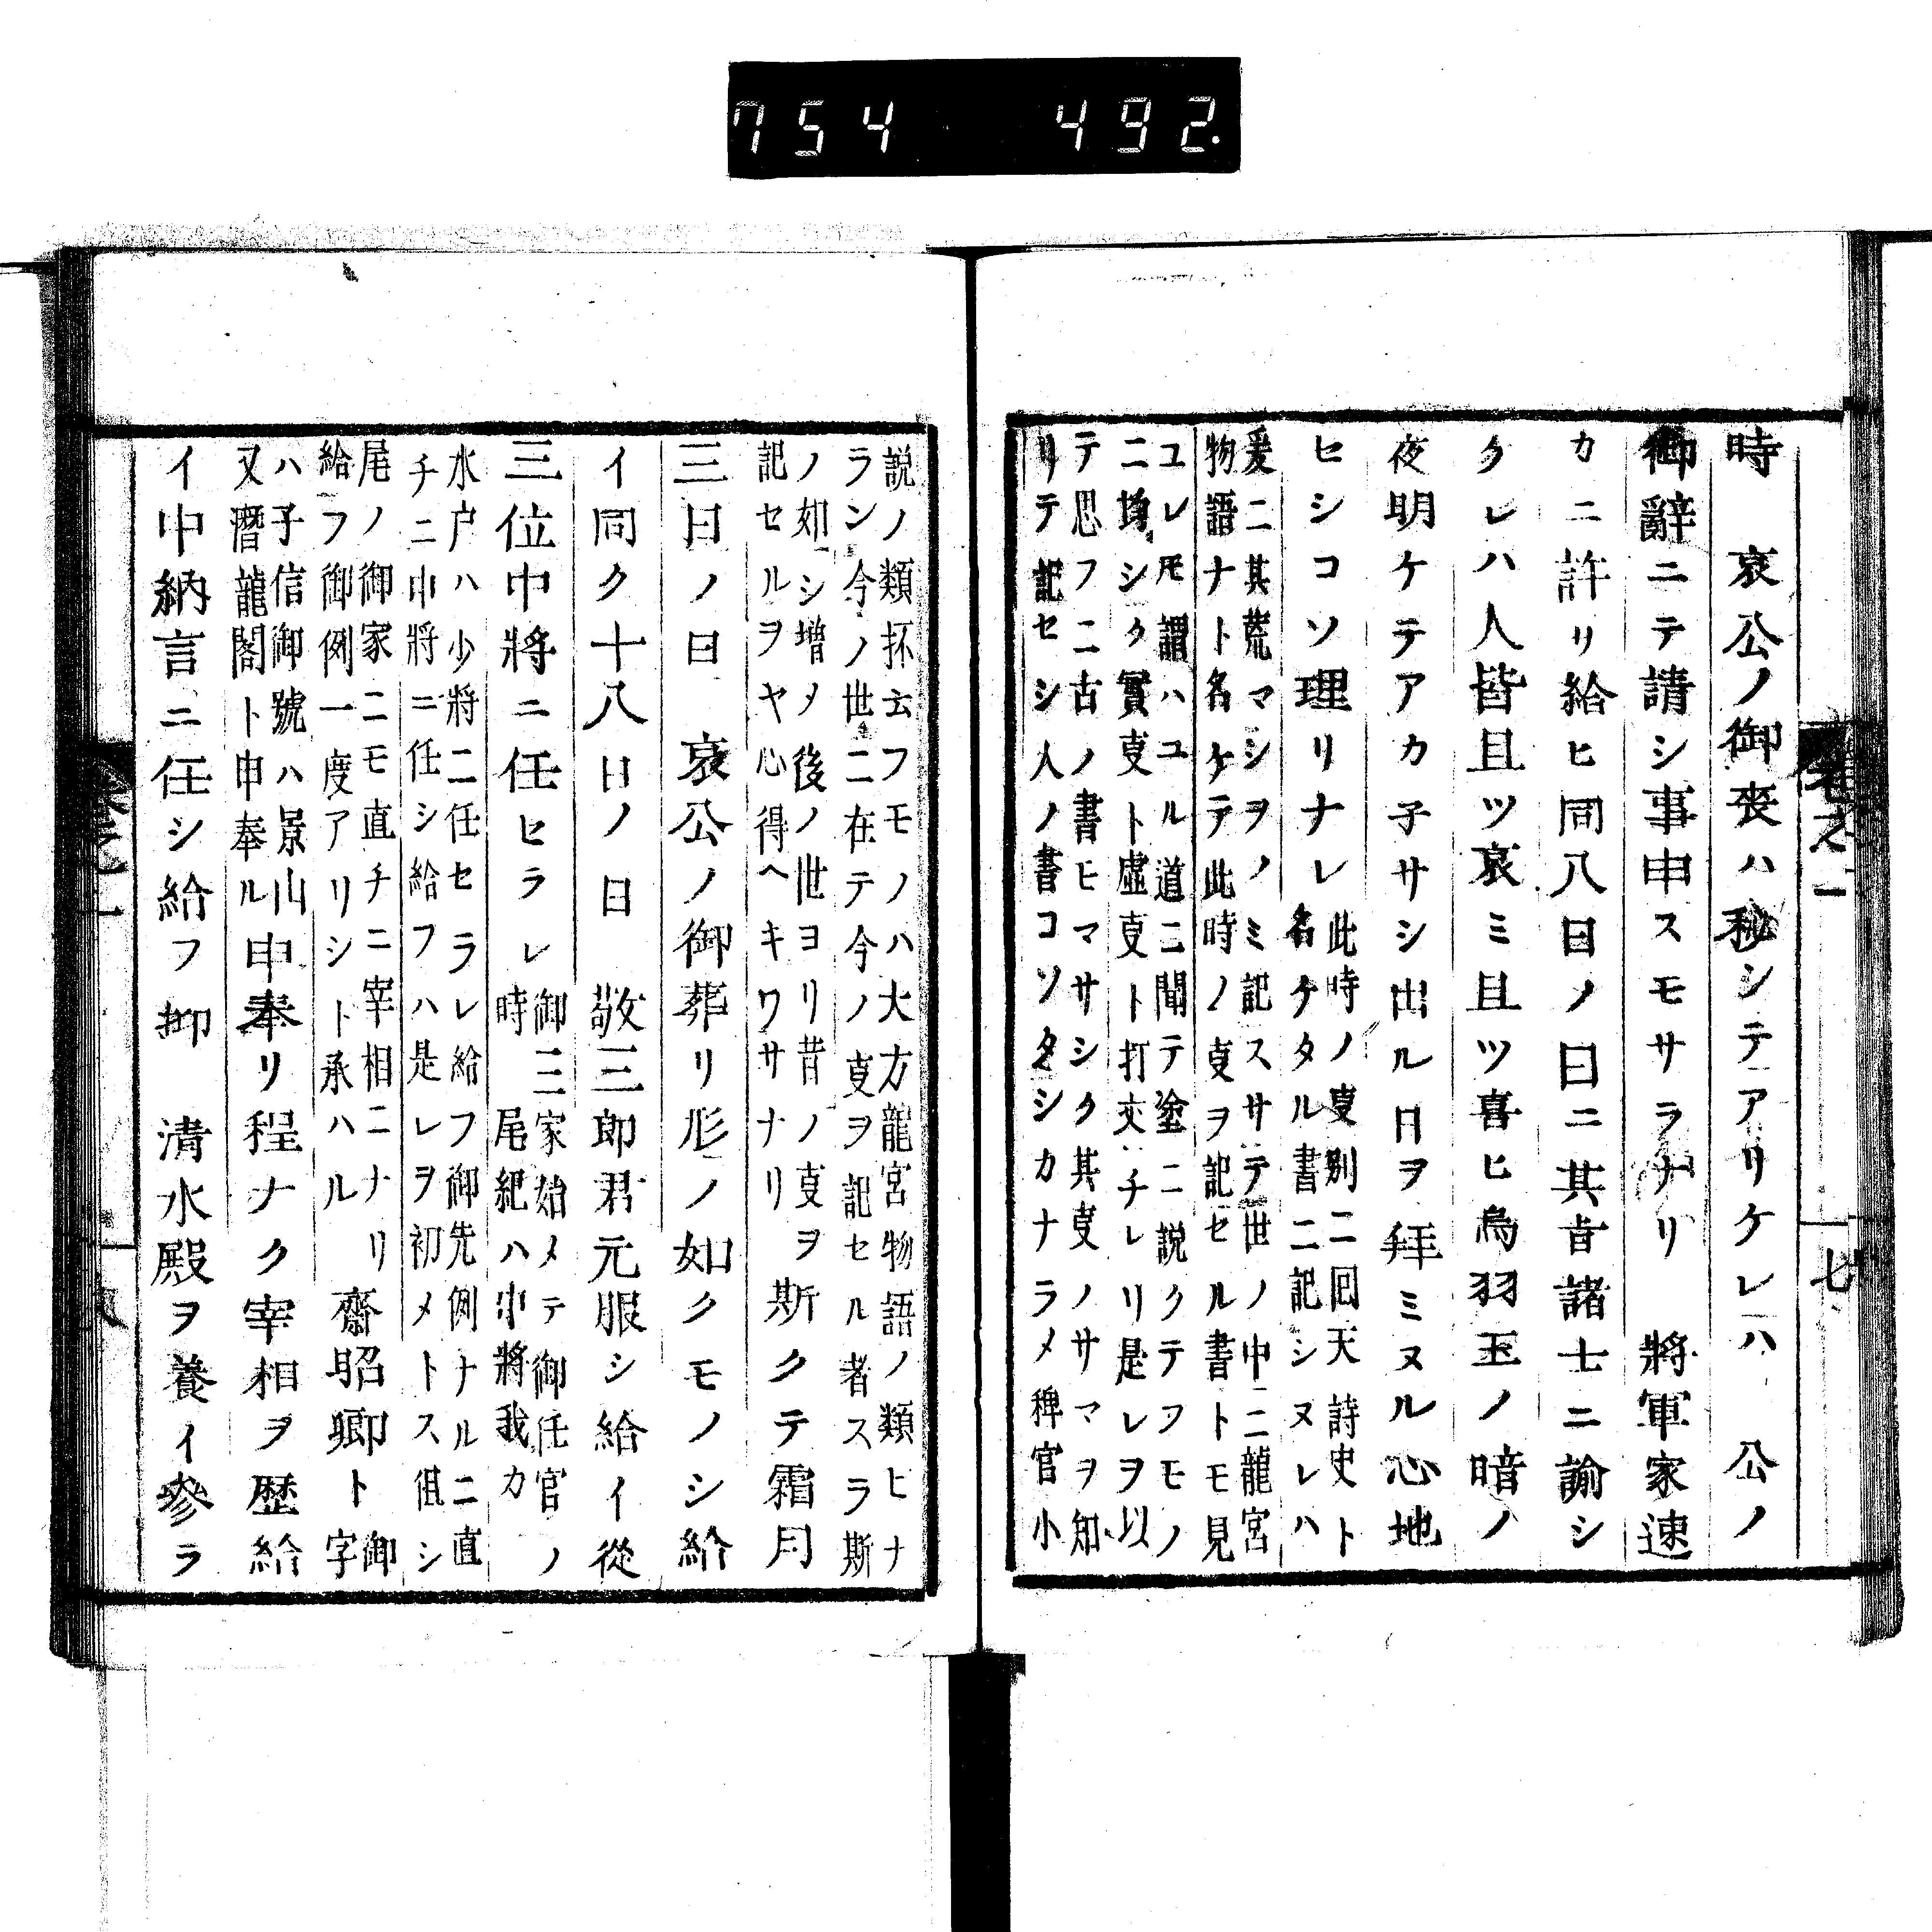 754 492.
卷之一
十七
時　哀公ノ御喪ハ秘シテアリケレハ　公ノ
御辭ニテ請シ事申スモサラナリ　將軍家速
カニ許リ給ヒ同八日ノ日ニ其旨諸士ニ諭シ
クレハ人皆且ツ哀ミ且ツ喜ヒ烏羽玉ノ暗ノ
夜明ケテアカ子サシ出ル日ヲ拜ミヌル心地
ヒシコソ理リナレ
此時ノ㕝別ニ回天詩史ト
名ケタル書ニ記シヌレハ
爰ニ其荒マシヲノミ記スサテ世ノ中ニ龍宮
物語ナト名ケテ此時ノ㕝ヲ記セル書トモ見
ユレ𪜈謂ハユル道ニ聞テ塗ニ説クテフモノ
ニ均シク實㕝ト虛㕝ト打交チレリ是レヲ以
テ思フニ古ノ書ヒマサシク其㕝ノサマヲ知
リテ記セシ人ノ書コソタシカナラメ稗官小
説ノ類抔云フモノハ大方龍宮物語ノ類ヒナ
ラン今ノ世ニ在テ今ノ㕝ヲ記セル者スラ斯
ノ如シ增メ後ノ世ヨリ昔ノ㕝ヲ
記セルヲヤ心得ヘキワサナリ
斯クテ霜月
三日ノ日　哀公ノ御葬リ形ノ如クモノシ給
イ同ク十八日ノ日　敬三郎君元服シ給イ從
三位中將ニ任ヒラレ
御三家始メテ御任官ノ
時　尾紀ハ中將我カ
水户ハ少將ニ任セラレ給フ御先例ナルニ直
チニ中將ニ任シ給フハ是レヲ初メトス但シ
尾ノ御家ニモ直チニ宰相ニナリ
給フ御例一度アリシト承ハル
齋昭卿ト
御字
ハ子信御號ハ景山
又潛龍閣ト申奉ル
申奉リ程ナク宰相ヲ歷給
イ中納言ニ任シ給フ抑　清水殿ヲ養イ參ラ